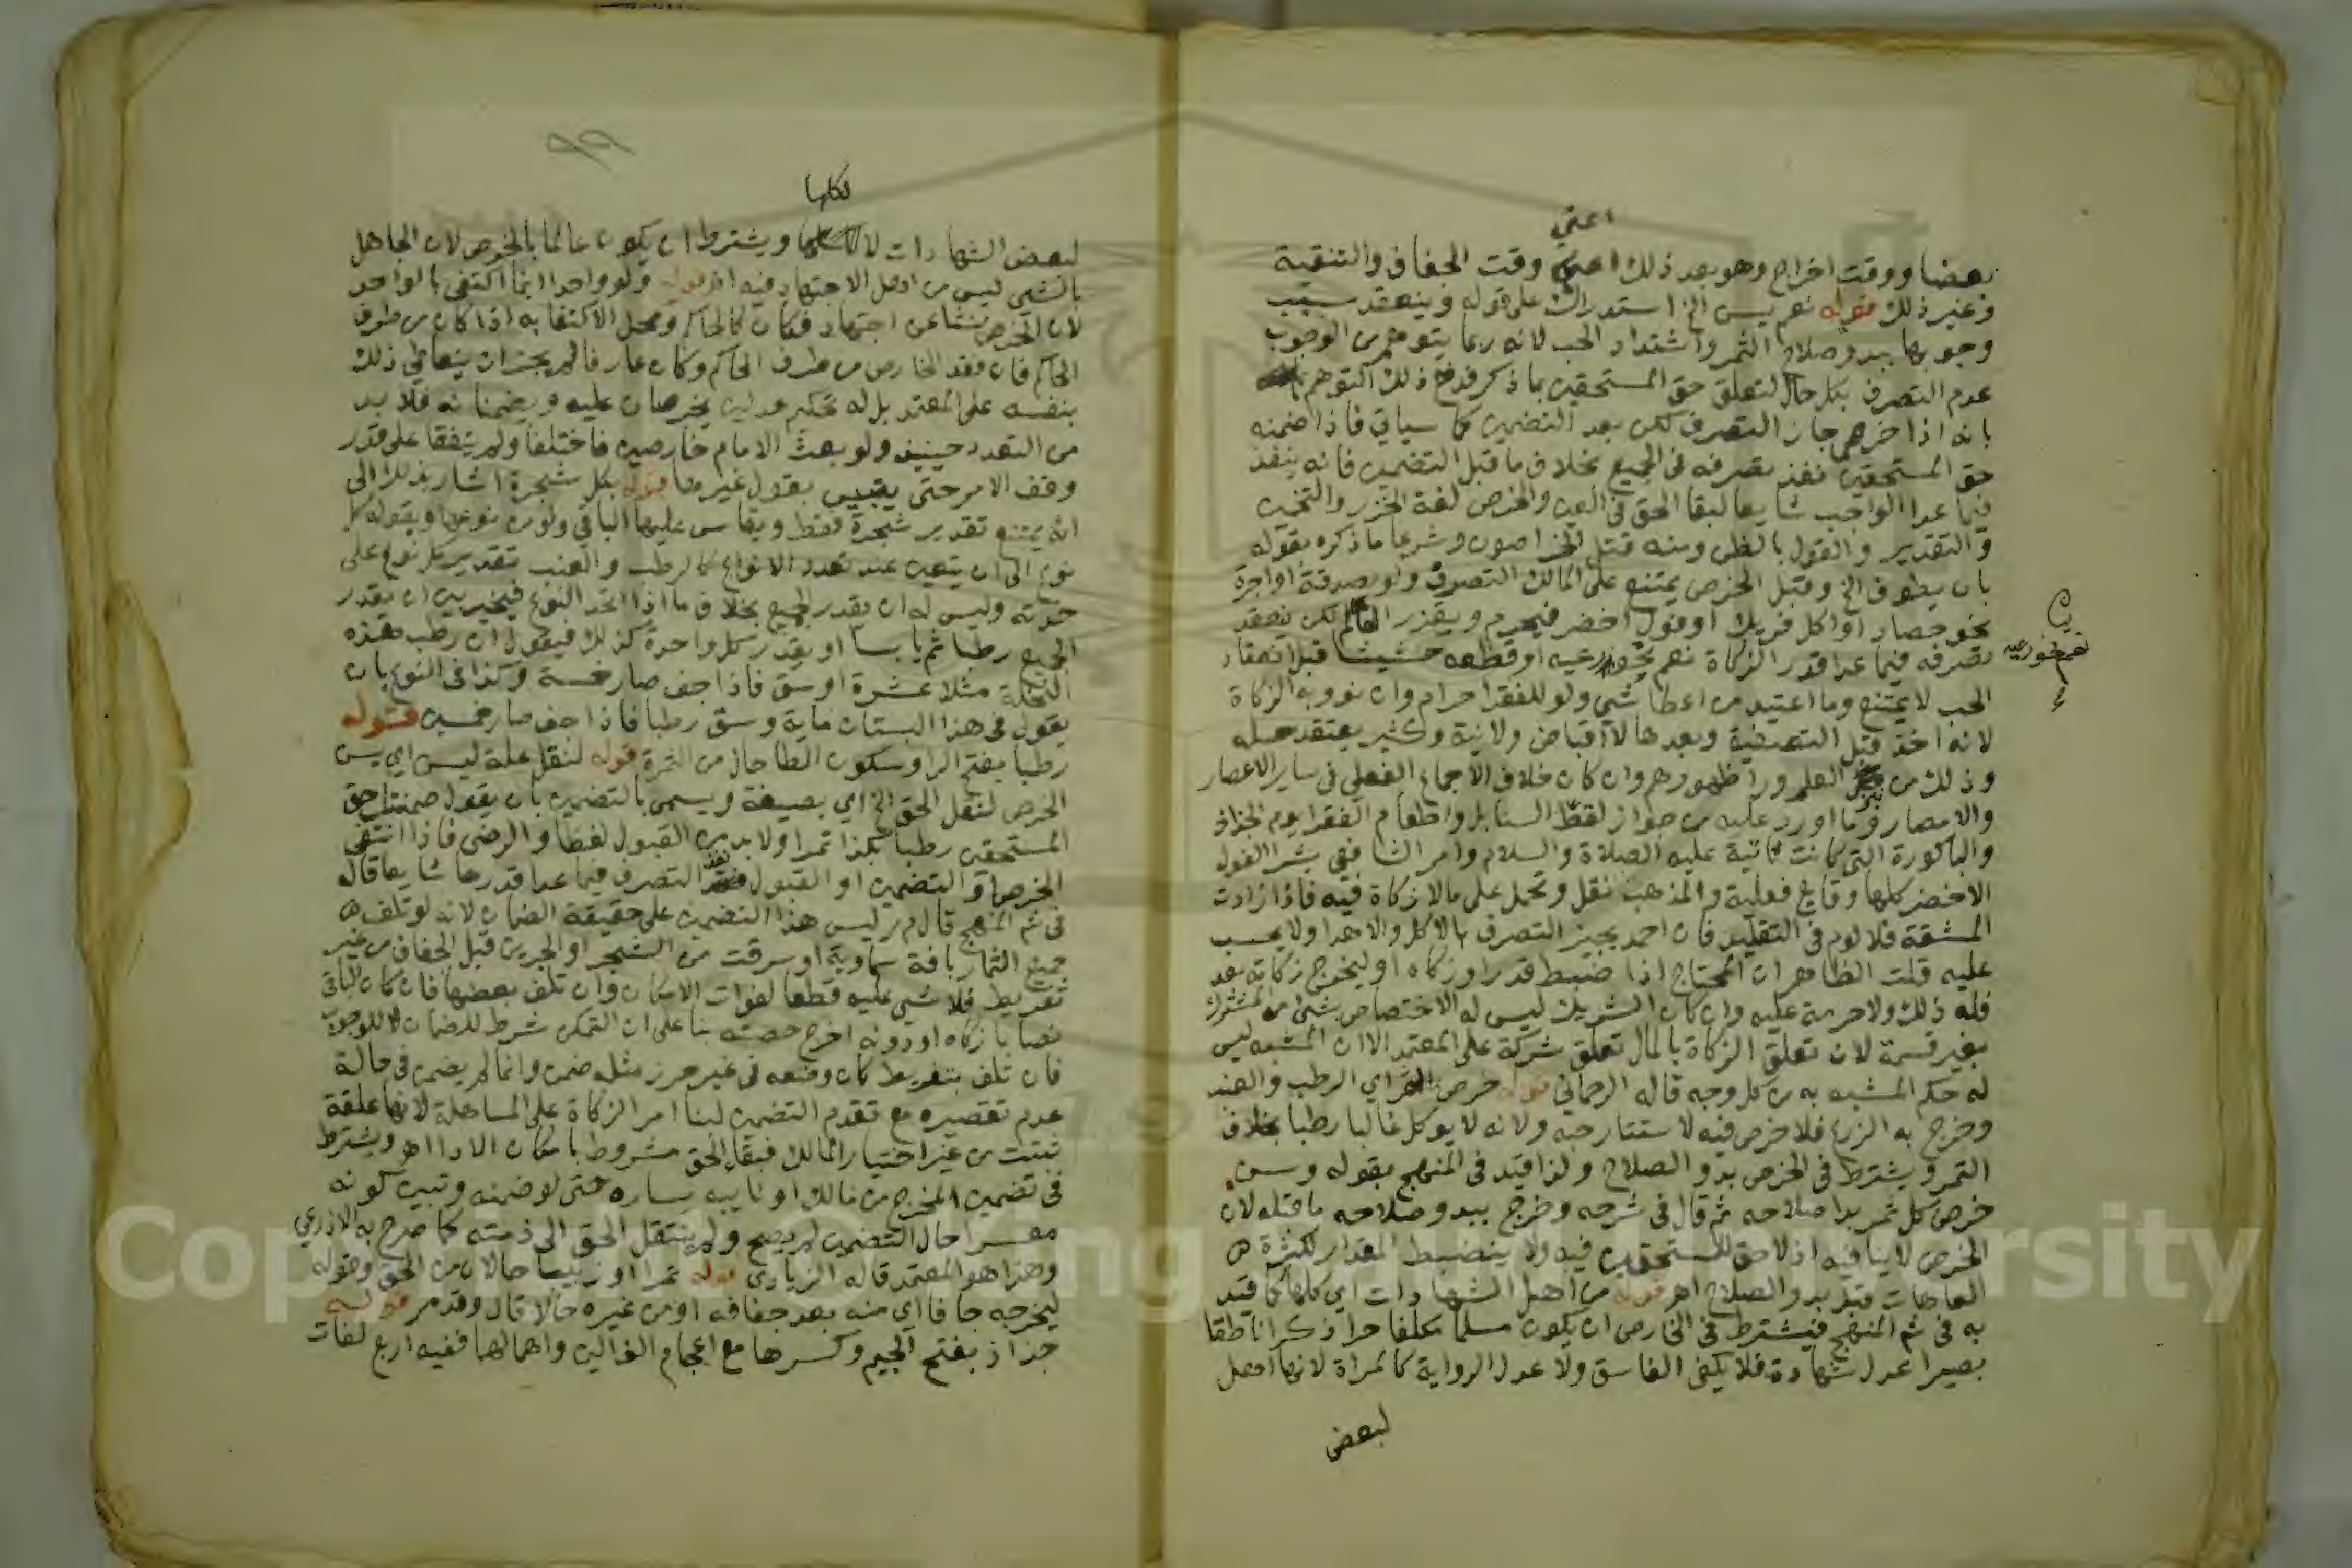 اعني
بعضا ووقت اخراج وهو بعد ذلك وقت الجفاف والتنقية
وغير ذلك قوله نعم يسن الخ استدراك على قوله وينعقد سبب
وجوبها ببدو صلاح الثمر واشتداد الحب لانه ربما يتوهم من الوجوب
عدم التصرف بكل حال لتعلق حق المستحقين بما ذكر فدفع ذلك التوهم
بانه اذا خرصها جاز التصرف لكن بعد التضمين كما سياتي فاذا ضمنه
حق المستحقين نفذ تصرفه في الجميع بخلاف ما قبل التضمين فانه ينفذ
فيما عدا الواجب شايعا لبقا الحق في العين والخرص لغة الحزر والتخمين
والتقدير والقول بالظن ومنه قتل الخراصون وشرعا ما ذكره بقوله
بان يطوف الخ وقبل الخرص يمتنع على المالك التصرف ولو بصدقة او اجرة
نحو حصاد او اكل فريك او فول اخضر فيحرم ويعزر العالم لكن ينعقد
تصرفه فيما عدا قدر الزكاة نعم يجوز رعيه او قطعه حشيشا قبل انعقاد
الحب لا يمتنع وما اعتيد من اعطا شي ولو للفقرا حرام وان نووبه الزكاة
لانه اخذ قبل التصفية وبعدها لا اقباض ولا نية وكثير يعتقد حله
وذلك من العلم ورا ظهورهم وان كان خلاف الاجماع الفعلي في ساير الاعصار
والامصار وما اورد عليه من جواز لقط السنابل واطعام الفقرا يوم الجذاذ
والباكورة التي كانت تاتيه عليه الصلاة والسلام وامر الشافعي بشرا الفول
الاخضر كلها وقايع فعلية والمذهب نقل وتحمل على مالا زكاة فيه فاذا زادت
المشقة فلا لوم في التقليد فان احمد يجيز التصرف بالاكل والاهدا ولا يحسب
عليه قلت الظاهر ان المحتاج اذا ضبط قدرا وزكاه او ليخرج زكاته بعد
فله ذلك ولا حرمة عليه وان كان الشريك ليس له الاختصاص بشئ من المشترك
بغير قسمة لان تعلق الزكاة بالمال تعلق شركة على المعتمد الا ان المشبه ليس
له حكم المشبه به من كل وجه قاله الرحماني قوله خرص الثمر اي الرطب والعنب
وخرج به الزرع فلا خرص فيه لاستتار حبه ولانه لا يوكل غالبا رطبا بخلاف
الثمر ويشترط في الخرص بدو الصلاح ولذا قيد في المنهج بقوله وسن
خرص كل ثمر بدا صلاحه ثم قال في شرحه وخرج ببدو صلاحه ما قبله لان
الخرص لا يتاتى فيه اذ لا حق للمستحقين فيه ولا ينضبط المقدار لكثرة
العاهات قبل بدو الصلاح اهـ قوله من اهل الشهادات اي كلها كما قيد
به في شم المنهج فيشترط في الخارص ان يكون مسلما مكلفا حرا ذكرا ناطقا
بصيرا عدل شهادة فلا يكفي الفاسق ولا عدل الرواية كالمراة لانها اهل
لبعض
٩٩
لكلها
لبعض الشهادات لا ويشترط ان يكون عالما بالخرص لان الجاهل
بالشي ليس من اهل الاجتهاد فيه اهـ قوله ولو واحدا انما اكتفى بالواحد
لان الخرص ينشا عن اجتهاد فكان كالحاكم ومحل الاكتفا به اذا كان من طرف
الحاكم فان فقد الخارص من طرف الحاكم وكان عارفا لم يجز ان يتعاطى ذلك
بنفسه على المعتمد بل له تحكيم عدلين يخرصان عليه ويضمنانه فلا بد
من التعدد حينيذ ولو بعث الامام خارصين فاختلفا ولم يتفقا على قدر
وقف الامر حتى يتبين بقول غيرهما قوله بكل شجرة اشار بذلك الى
انه يمتنع تقدير شجرة فقط ويقاس عليها الباقي ولو من نوعها وبقوله كل
نوع الى ان يتعين عند تعدد الانواع كالرطب والعنب تقدير كل نوع على
حدته وليس له ان يقدر الجميع بخلاف ما اذا اتحد النوع فيخير بين ان يقدر
الجميع رطبا ثم يابسا او يقدر كل واحدة كذلك فيقول ان رطب هذه
النخلة مثلا عشرة اوسق فاذا جف صار خمسة وكذا في النوع بان
يقول في هذا البستان ماية وسق رطبا فاذا جف صار خمسين قوله
رطبا بفتح الرا وسكون الطا حال من الثمرة قوله لنقل علة ليسن اي يسن
الخرص لنقل الحق الخ اي بصيغة ويسمى بالتضمين بان يقول ضمنتك حق
المستحقين رطبا بكذا تمرا ولا بد من القبول لفظا والرضى فاذا انتفى
الخرص او التضمين او القبول نفذ التصرف فيما عدا قدرها شايعا قاله
في شم المنهج قال م ر ليس هذا التضمين على حقيقة الضمان لانه لو تلف
جميع الثمار بافة سماوية او سرقت من الشجر او الجرين قبل الجفاف من غير
تفريط فلا شي عليه قطعا لفوات الامكان وان تلف بعضها فان كان الباقي
نصابا زكاه او دونه اخرج حصته بنا على ان التمكن شرط للضمان لا للوجوب
فان تلف بتفريط كان وضعه في غير حرز مثله ضمن وانما لم يضمن في حالة
عدم تقصيره مع تقدم التضمين لبنا امر الزكاة على المساهلة لانها علقة
ثبتت من غير اختيار المالك فبقاء الحق مشروط بامكان الادا اهـ ويشترط
في تضمين المخرج من مالك او نايبه يساره حتى لو ضمنه وتبين كونه
معسرا حال التضمين لم يصح ولم ينتقل الحق الى ذمته كما صرح به الاذرعي
وهذا هو المعتمد قاله الزيادي قوله تمرا او زبيبا حالان من الحق وقوله
ليخرجه جافا اي منه بعد جفافه او من غيره حالا قال وقدم ر قوله
جذاذ بفتح الجيم وكسرها مع اعجام الذالين واهمالهما ففيه اربع لغات
Copyright © King University